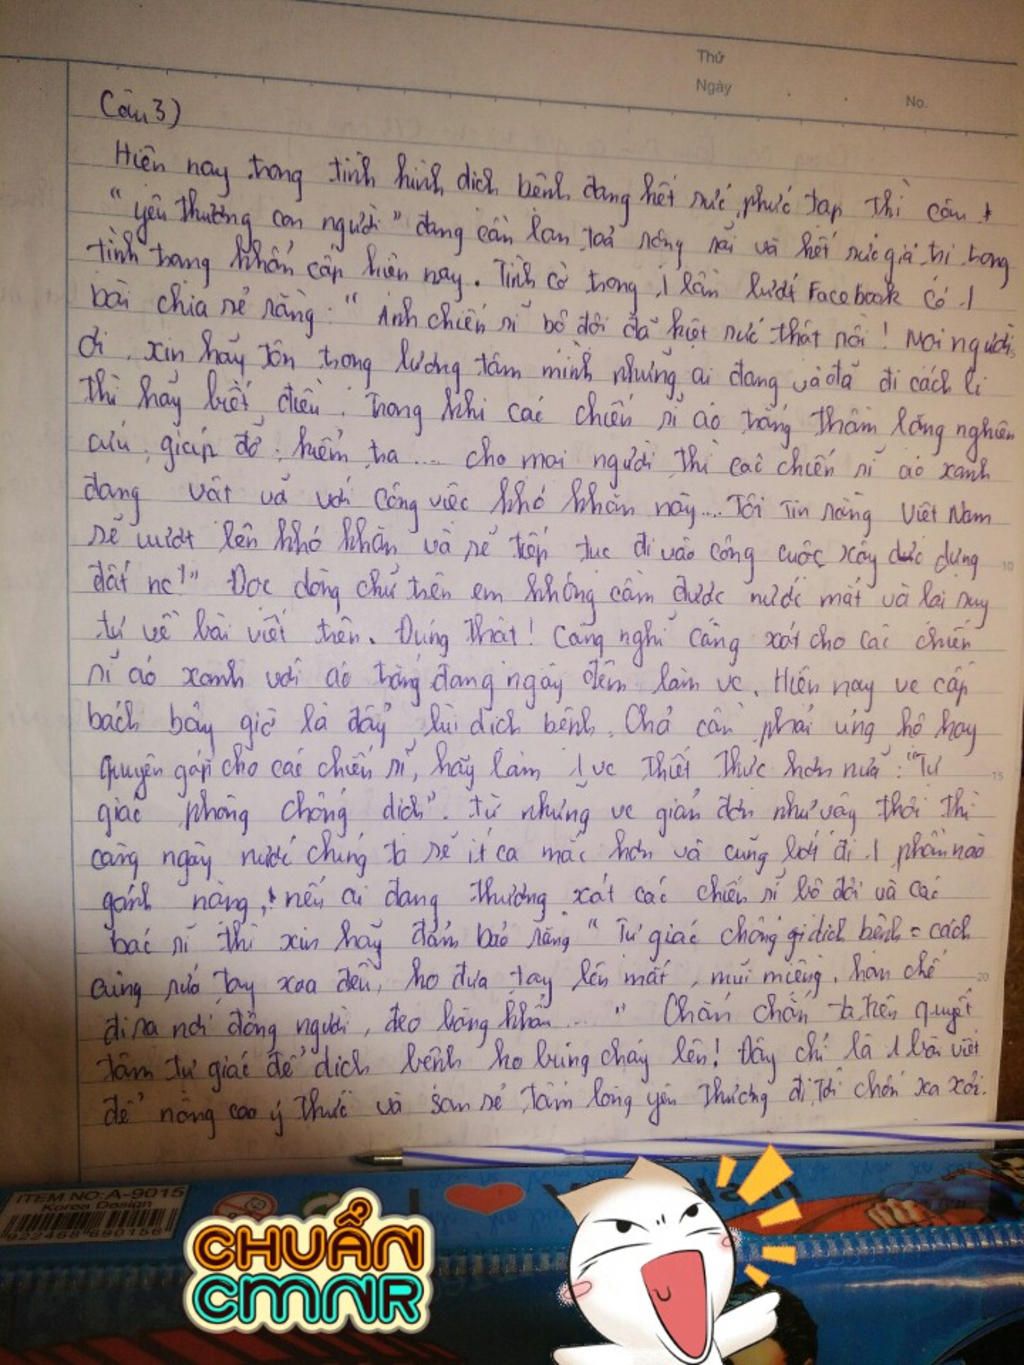 Thứ
Ngày
No.
Câu 3)
Hiện nay trong tình hình dịch bệnh đang hết sức phức tạp thì câu
"yêu thương con người" đang cần lan toả rộng rãi và hết sức giá trị trong
tình trạng khẩn cấp hiện nay. Tình cờ trong 1 lần lướt Facebook có 1
bài chia sẻ rằng: "Anh chiến sĩ bộ đội đã kiệt sức thật rồi! Mọi người
ơi, xin hãy tôn trọng lương tâm mình những ai đang và đã đi cách li
thì hãy biết điều. Trong khi các chiến sĩ áo trắng thầm lặng nghiên
cứu, giúp đỡ, kiểm tra.... cho mọi người thì các chiến sĩ áo xanh
đang vất vả với công việc khó khăn này.... Tôi tin rằng Việt Nam
sẽ vượt lên khó khăn và sẽ tiếp tục đi vào công cuộc xây dựng
đất nc!" Đọc dòng chữ trên em không cầm được nước mắt và lại suy
tư về bài viết trên. Đúng thật! Càng nghĩ càng xót cho các chiến
sĩ áo xanh với áo trắng đang ngày đêm làm vc. Hiện nay vc cấp
bách bây giờ là đẩy lùi dịch bệnh. Chả cần phải ủng hộ hay
quyên góp cho các chiến sĩ, hãy làm 1 vc thiết thực hơn nữa: "Tự
giác phòng chống dịch". Từ những vc giản đơn như vậy thôi thì
càng ngày nước chúng ta sẽ ít ca mắc hơn và cũng bớt đi 1 phần nào
gánh nặng, nếu ai đang thương xót các chiến sĩ bộ đội và các
bác sĩ thì xin hãy đảm bảo rằng "Tự giác chống dịch bệnh = cách
cùng rửa tay xoa đều, ko đưa tay lên mắt, mũi miệng, hạn chế
đi ra nơi đông người, đeo băng khẩn...." Chắn chắn ta trên quyết
tâm tự giác để dịch bệnh ko bùng cháy lên! Đây chỉ là 1 bài viết
để nâng cao ý thức và san sẻ tấm lòng yêu thương đi tới chốn xa xôi.
10
15
20
ITEM NO: A-9015
Korea Design
9224686690156
I
CHUẨN
CMNR